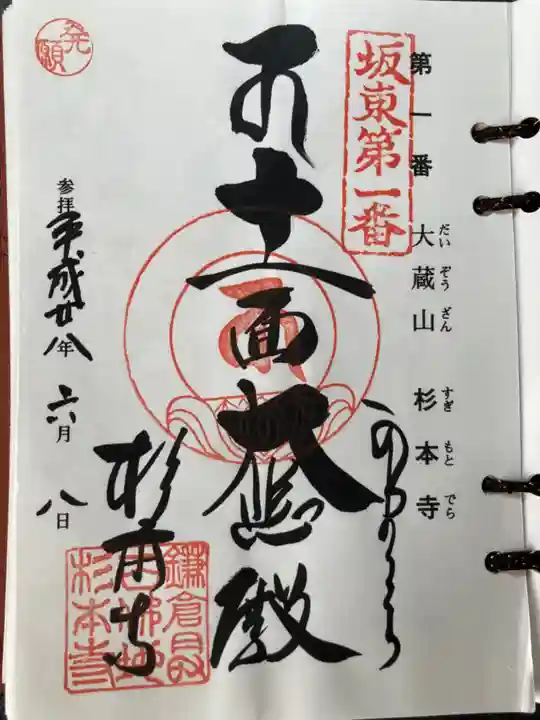 第一番 大蔵山 杉本寺
だい ぞう ざん すぎ もと でら
坂東第一番
十一面大悲殿
杉本寺
発願
参拝 平成廿八年 六月 八日
鎌倉最
古佛地
杉本寺